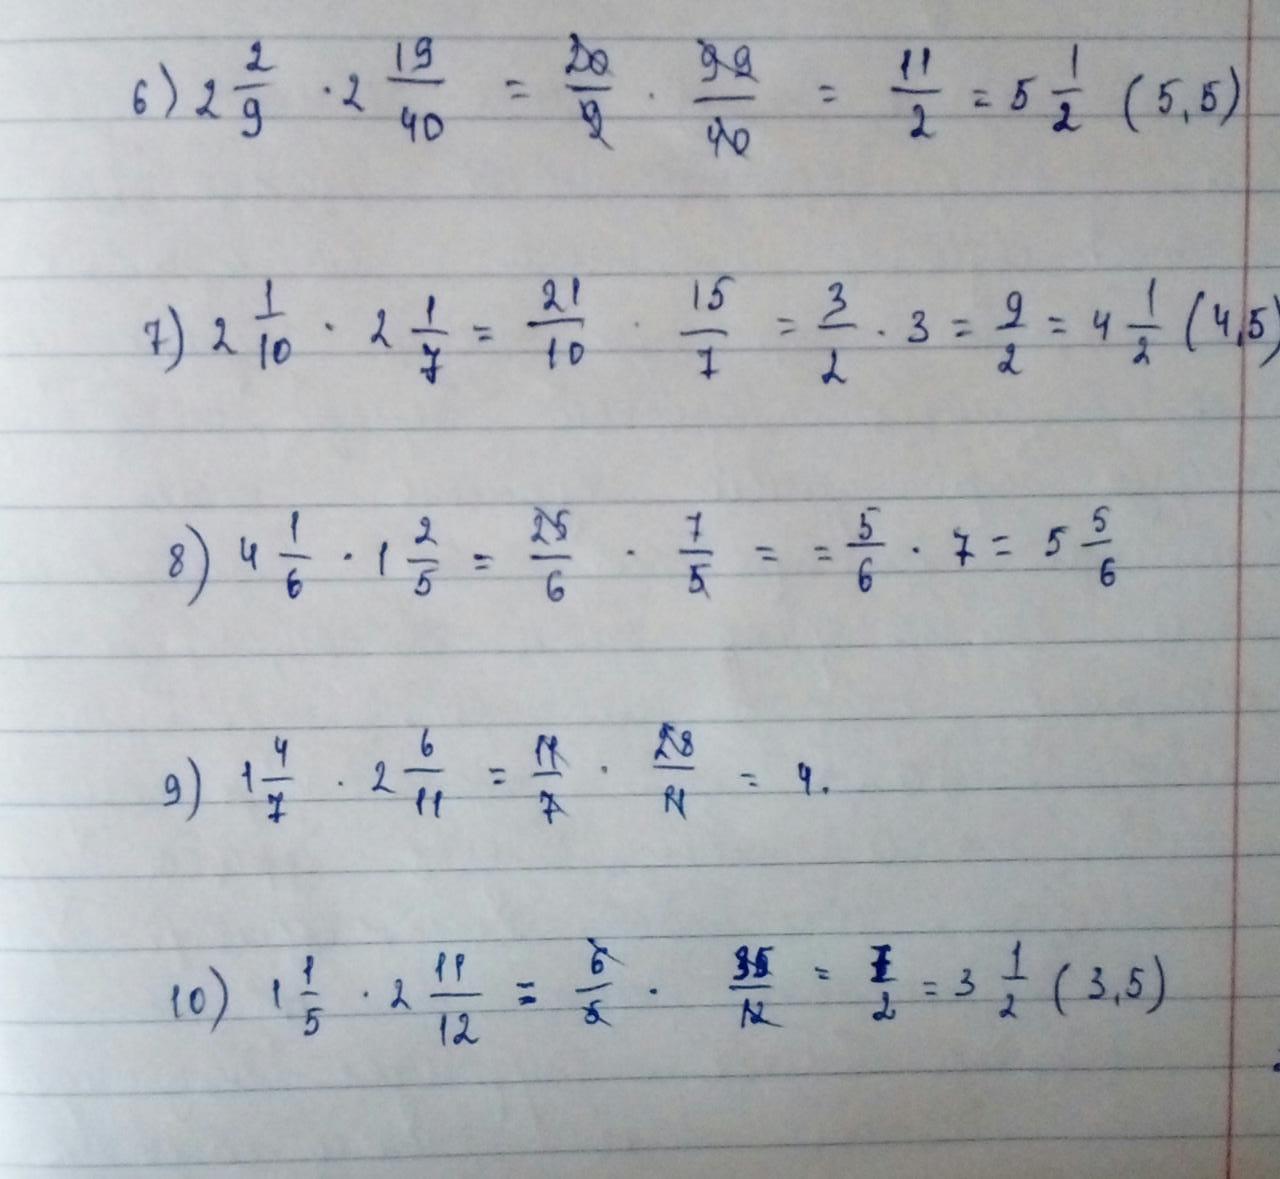 6) 2 2/9 · 2 19/40 = 20/9 · 99/40 = 11/2 = 5 1/2 (5,5)
7) 2 1/10 · 2 1/7 = 21/10 · 15/7 = 3/2 · 3 = 9/2 = 4 1/2 (4,5)
8) 4 1/6 · 1 2/5 = 25/6 · 7/5 = = 5/6 · 7 = 5 5/6
9) 1 4/7 · 2 6/11 = 11/7 · 28/11 = 4.
10) 1 1/5 · 2 11/12 = 6/5 · 35/12 = 7/2 = 3 1/2 (3,5)